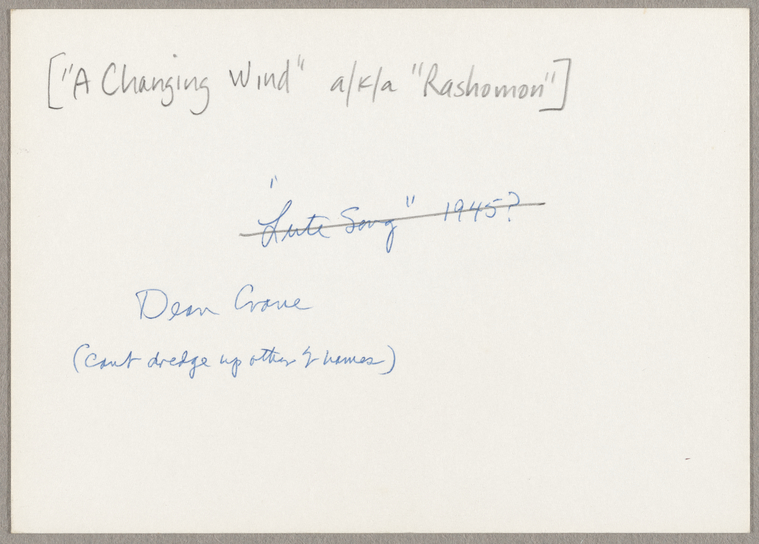 ["A Changing Wind" a/k/a "Rashomon"]
"Lute Song" 1945?
Dean Crane
(cant dredge up other names)